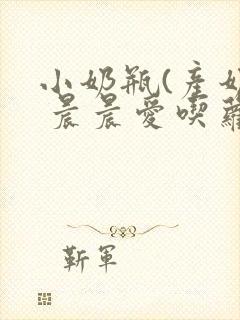 小奶瓶(産奶
晨晨愛喫蘿
靳軍